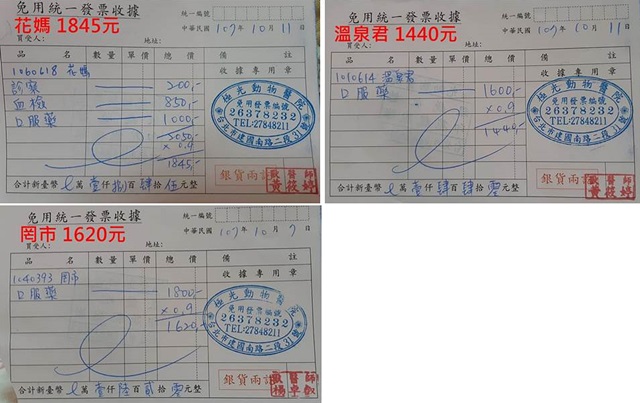 免用統一發票收據
花媽 1845元
統一編號
中華民國 107年 10月 11日
買受人:
地址:
品 名 數量 單價 總價 備 註
收據專用章
1060618 花媽
診察 200,-
血檢 850,-
口服藥 1000,-
2050,-
x 0.9
1845,-
極光動物醫院
免用發票編號
26378232
TEL:27848211
台北市建國南路二段31號
銀貨兩訖
獸醫師
黃筱婷
合計新臺幣 萬壹仟捌百肆拾伍元整
免用統一發票收據
溫泉君 1440元
統一編號
中華民國 107年 10月 11日
買受人:
地址:
品 名 數量 單價 總價 備 註
收據專用章
1010614 溫泉君
口服藥 1600,-
x 0.9
1440,-
極光動物醫院
免用發票編號
26378232
TEL:27848211
台北市建國南路二段31號
銀貨兩訖
獸醫師
黃筱婷
合計新臺幣 萬壹仟肆百肆拾零元整
免用統一發票收據
罔市 1620元
統一編號
中華民國 107年 10月 7日
買受人:
地址:
品 名 數量 單價 總價 備 註
收據專用章
1040393 罔市
口服藥 1800,-
x 0.9
1620,-
極光動物醫院
免用發票編號
26378232
TEL:27848211
台北市建國南路二段31號
銀貨兩訖
獸醫師
合計新臺幣 萬壹仟陸百貳拾零元整